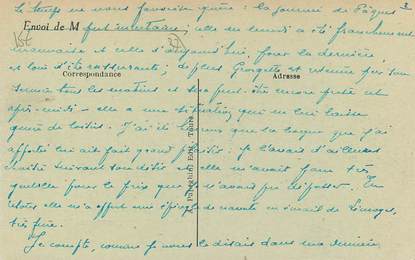 Le temps ne nous favorise guère : la journée de Pâques 3
Envoi de M
fut incertaine ; celle du lundi a été franchement
mauvaise et celle d'aujourd'hui, pour la dernière,
est loin d'être rassurante ; de plus Georgette est retenue par son
Correspondance Adresse
service tous les matins et sera peut-être encore prise cet
après-midi - elle a une situation qui ne lui laisse
guère de loisirs. J'ai été heureux que la bague que j'ai
apportée lui ait fait grand plaisir : je l'avais d'ailleurs
choisie suivant son désir et elle m'avait paru très
pour le prix que je n'avais pu dépasser. En
retour elle m'a offert une épingle de cravate en émail de Limoges,
très fine.
Je compte, comme je vous le disais dans ma dernière
A. Papeghin Edit. Tours